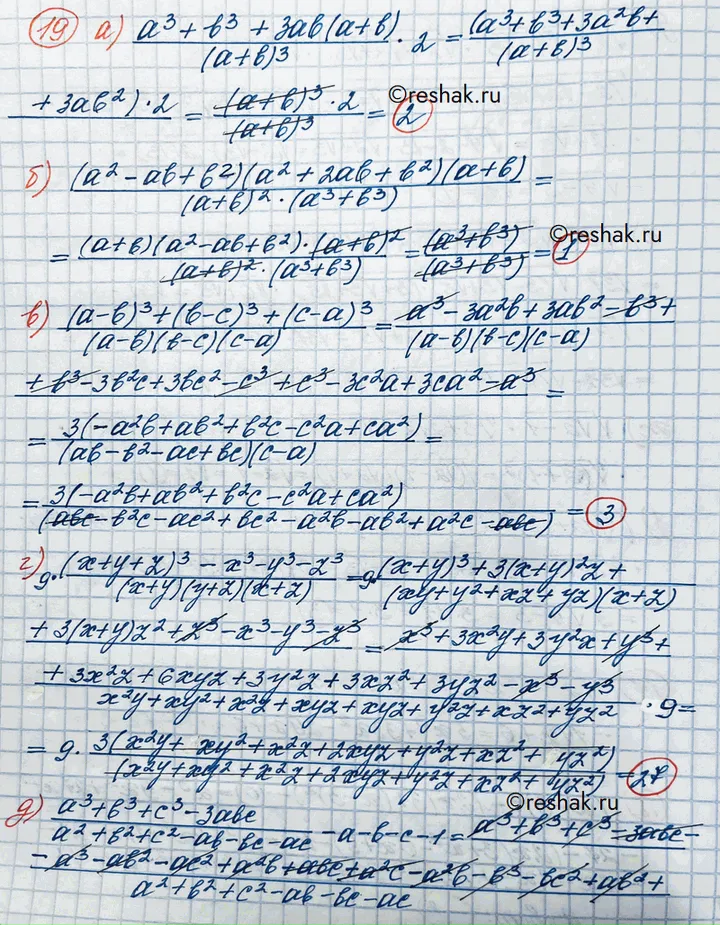 19 а) (a³ + b³ + 3ab(a+b))/(a+b)³ · 2 = (a³+b³+3a²b+
+ 3ab²) · 2/(a+b)³ = (a+b)³ · 2/(a+b)³ = 2
©reshak.ru
б) (a² - ab + b²)(a² + 2ab + b²)(a+b)/(a+b)² · (a³+b³) =
= (a+b)(a²-ab+b²) · (a+b)²/(a+b)² · (a³+b³) = (a³+b³)/(a³+b³) = 1
©reshak.ru
в) ((a-b)³ + (b-c)³ + (c-a)³)/(a-b)(b-c)(c-a) = a³ - 3a²b + 3ab² - b³ +/(a-b)(b-c)(c-a)
+ b³ - 3b²c + 3bc² - c³ + c³ - 3c²a + 3ca² - a³ =
= 3(-a²b + ab² + b²c - c²a + ca²)/(ab - b² - ac + bc)(c-a) =
= 3(-a²b + ab² + b²c - c²a + ca²)/(abc - b²c - ac² + bc² - a²b - ab² + a²c - abc) = 3
г) 9 · ((x+y+z)³ - x³ - y³ - z³)/(x+y)(y+z)(x+z) = 9 (x+y)³ + 3(x+y)²z +/(xy+y²+xz+yz)(x+z)
+ 3(x+y)z² + z³ - x³ - y³ - z³ = x³ + 3x²y + 3y²x + y³ +
+ 3x²z + 6xyz + 3y²z + 3xz² + 3yz² - x³ - y³/x²y + xy² + x²z + xyz + xyz + y²z + xz² + yz² · 9 =
= 9 · 3(x²y + xy² + x²z + 2xyz + y²z + xz² + yz²)/(x²y + xy² + x²z + 2xyz + y²z + xz² + yz²) = 27
©reshak.ru
д) (a³ + b³ + c³ - 3abc)/(a² + b² + c² - ab - bc - ac) - a - b - c - 1 = a³ + b³ + c³ - 3abc -
- a³ - ab² - ac² + a²b + abc + a²c - a²b - b³ - bc² + ab² +/a² + b² + c² - ab - bc - ac